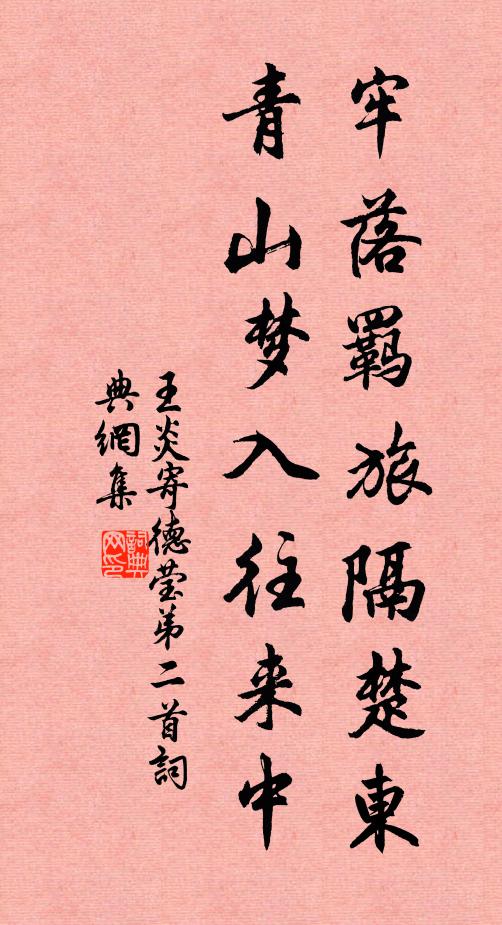 牢落羁旅隔楚東
青山梦入往来中
王炎寄德莹弟二首詞
典網集
詞典
网印